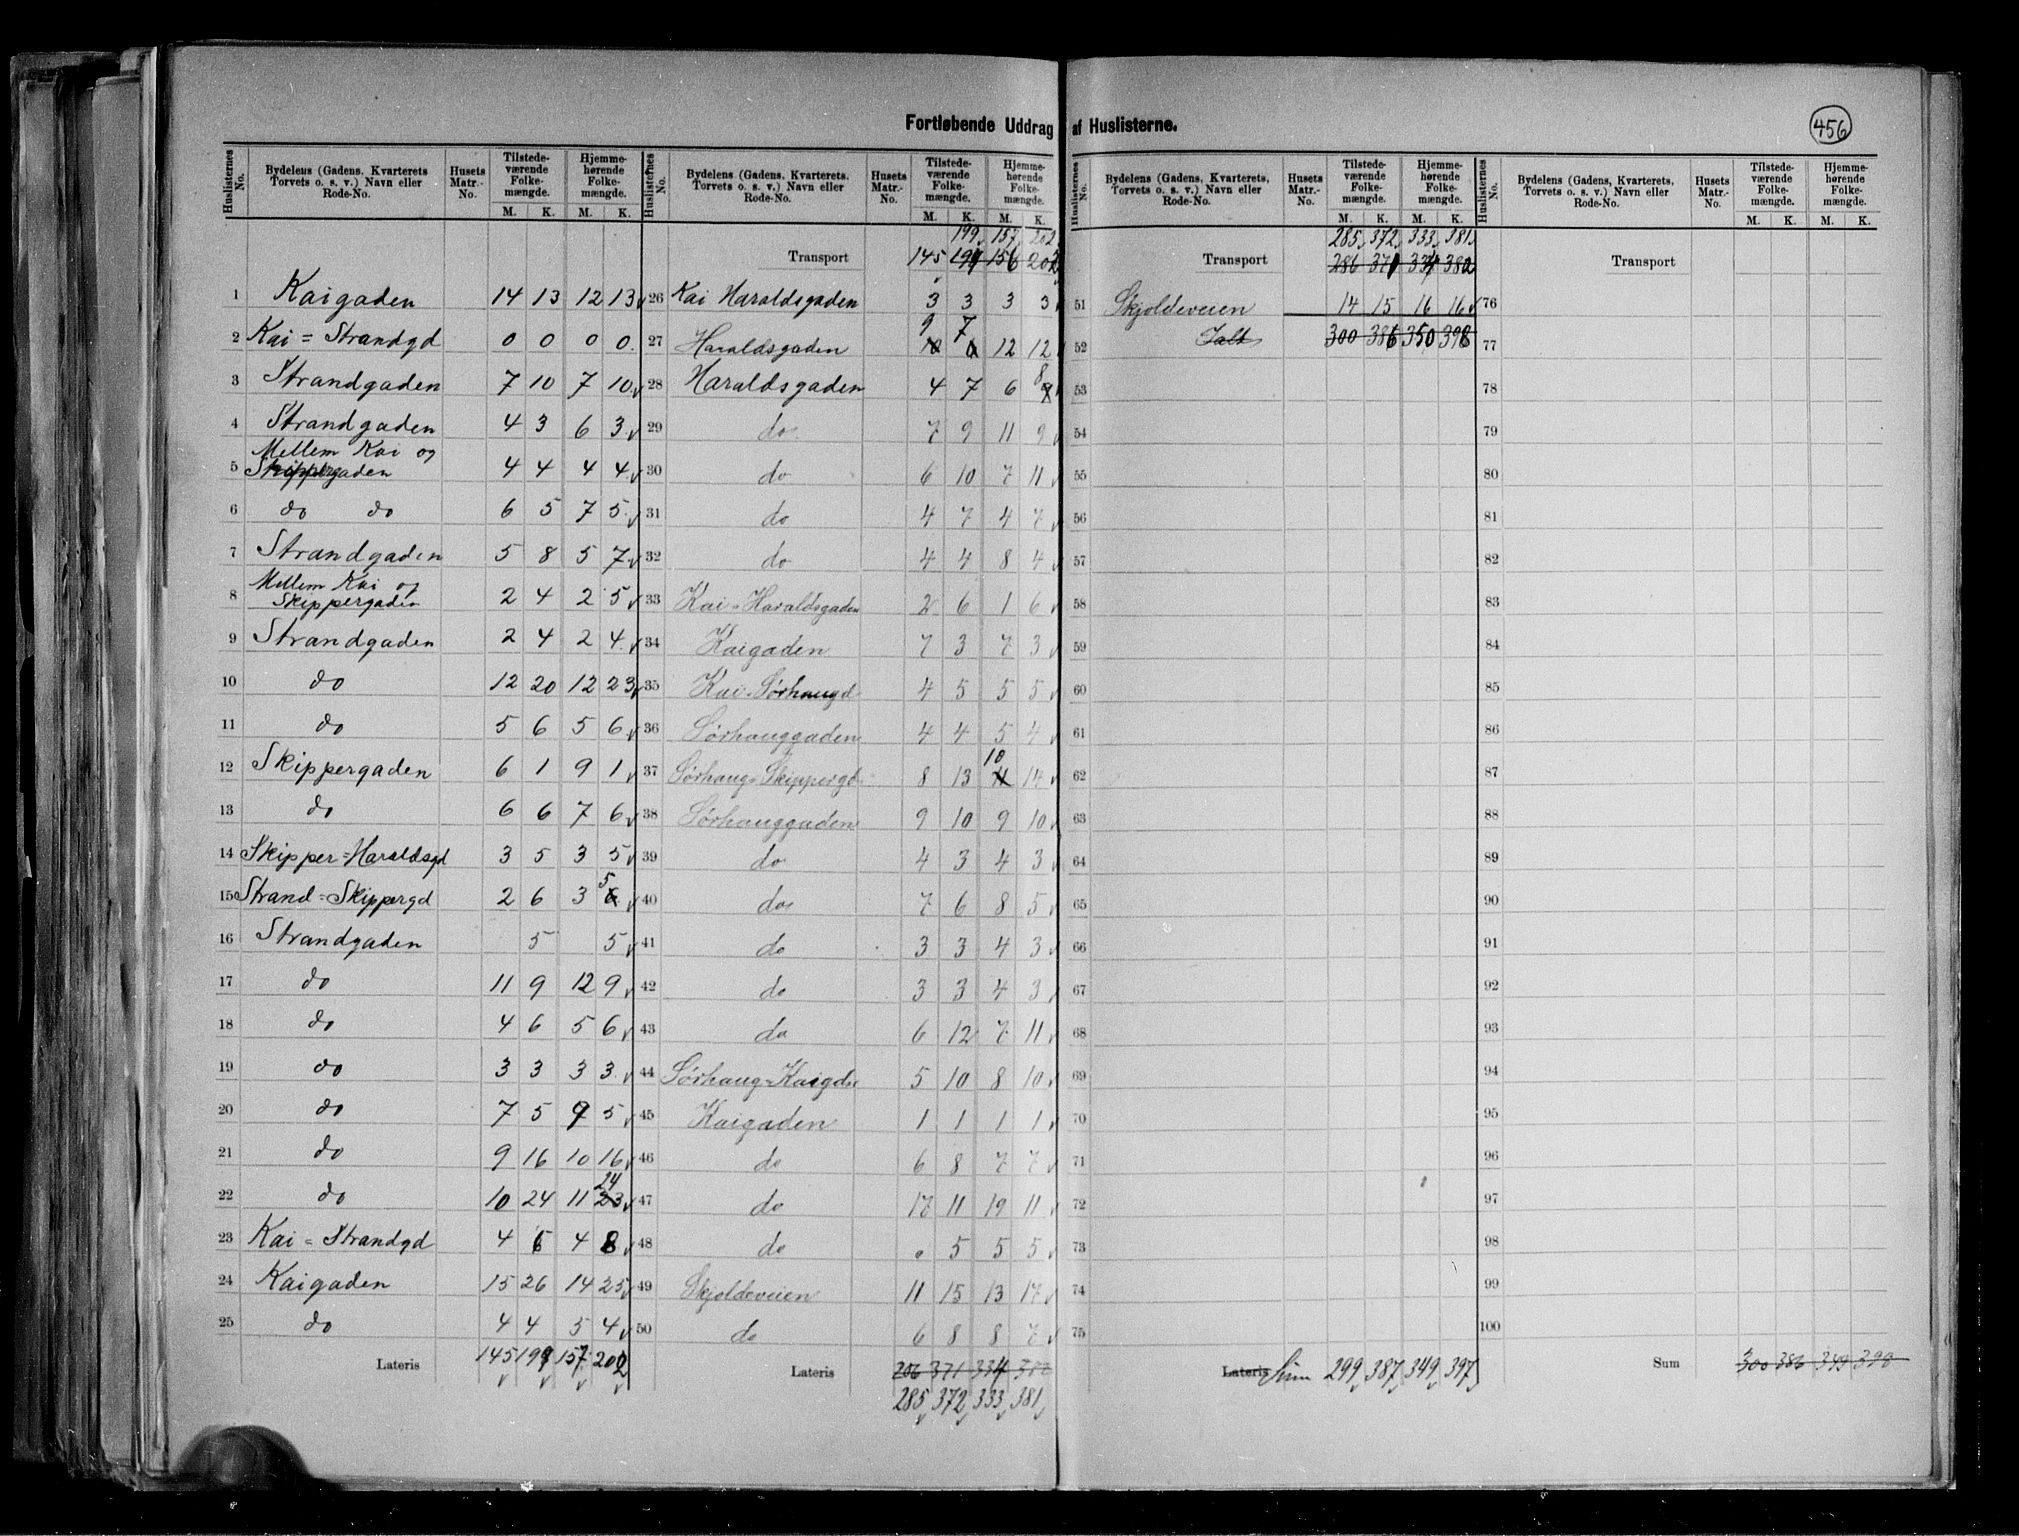 Fortløbende Uddrag af Huslisterne.
456
Huslisternes No. Bydelens (Gadens, Kvarterets Torvets o. s. v.) Navn eller Rode-No. Husets Matr.-No. Tilstedeværende Folkemængde. M. K. Hjemmehørende Folkemængde. M. K.
1 Kaigaden 14 13 12 13
2 Kai = Strandgd 0 0 0 0
3 Strandgaden 7 10 7 10
4 Strandgaden 4 3 6 3
5 Mellem Kai og Skippergaden 4 4 4 4
6 do do 6 5 7 5
7 Strandgaden 5 8 5 7
8 Mellem Kai og Skippergaden 2 4 2 5
9 Strandgaden 2 4 2 4
10 do 12 20 12 23
11 do 5 6 5 6
12 Skippergaden 6 1 9 1
13 do 6 6 7 6
14 Skipper=Haraldsgd 3 5 3 5
15 Strand=Skippergd 2 6 3 6 5
16 Strandgaden 5 5
17 do 11 9 12 9
18 do 4 6 5 6
19 do 3 3 3 3
20 do 7 5 9 5
21 do 9 16 10 16
22 do 10 24 11 23 24
23 Kai = Strandgd 4 6 4 8
24 Kaigaden 15 26 14 25
25 do 4 4 5 4
Lateris 145 199 157 202
Huslisternes No. Bydelens (Gadens, Kvarterets, Torvets o. s. v.) Navn eller Rode-No. Husets Matr.-No. Tilstedeværende Folkemængde. M. K. Hjemmehørende Folkemængde. M. K.
199 157 202
Transport 145 199 156 202
26 Kai Haraldsgaden 3 3 3 3
9 7
27 Haraldsgaden 12 12
28 Haraldsgaden 4 7 6 8
29 do 7 9 11 9
30 do 6 10 7 11
31 do 4 7 4 7
32 do 4 4 8 4
33 Kai=Haraldsgaden 2 6 1 6
34 Kaigaden 7 3 7 3
35 Kai=Sørhaugd 4 5 5 5
36 Sørhauggaden 4 4 5 4
37 Sørhaug=Skippergd 8 13 10 14
38 Sørhauggaden 9 10 9 10
39 do 4 3 4 3
40 do 7 6 8 5
41 do 3 3 4 3
42 do 3 3 4 3
43 do 6 12 7 11
44 Sørhaug=Kaigdn 5 10 8 10
45 Kaigaden 1 1 1 1
46 do 6 8 7 7
47 do 17 11 19 11
48 do 0 5 5 5
49 Skjoldeveien 11 15 13 17
50 do 6 8 8 7
Lateris 286 371 334 382
285 372 333 381
Huslisternes No. Bydelens (Gadens, Kvarterets, Torvets o. s. v.) Navn eller Rode-No. Husets Matr.-No. Tilstedeværende Folkemængde. M. K. Hjemmehørende Folkemængde. M. K.
285 372 333 381
Transport 286 371 334 382
51 Skjoldeveien 14 15 16 16
52 Ialt 300 386 350 398
53
54
55
56
57
58
59
60
61
62
63
64
65
66
67
68
69
70
71
72
73
74
75
Lateris Sum 299 387 349 397
Huslisternes No. Bydelens (Gadens, Kvarterets, Torvets o. s. v.) Navn eller Rode-No. Husets Matr.-No. Tilstedeværende Folkemængde. M. K. Hjemmehørende Folkemængde. M. K.
Transport
76
77
78
79
80
81
82
83
84
85
86
87
88
89
90
91
92
93
94
95
96
97
98
99
100
Sum 300 386 349 398